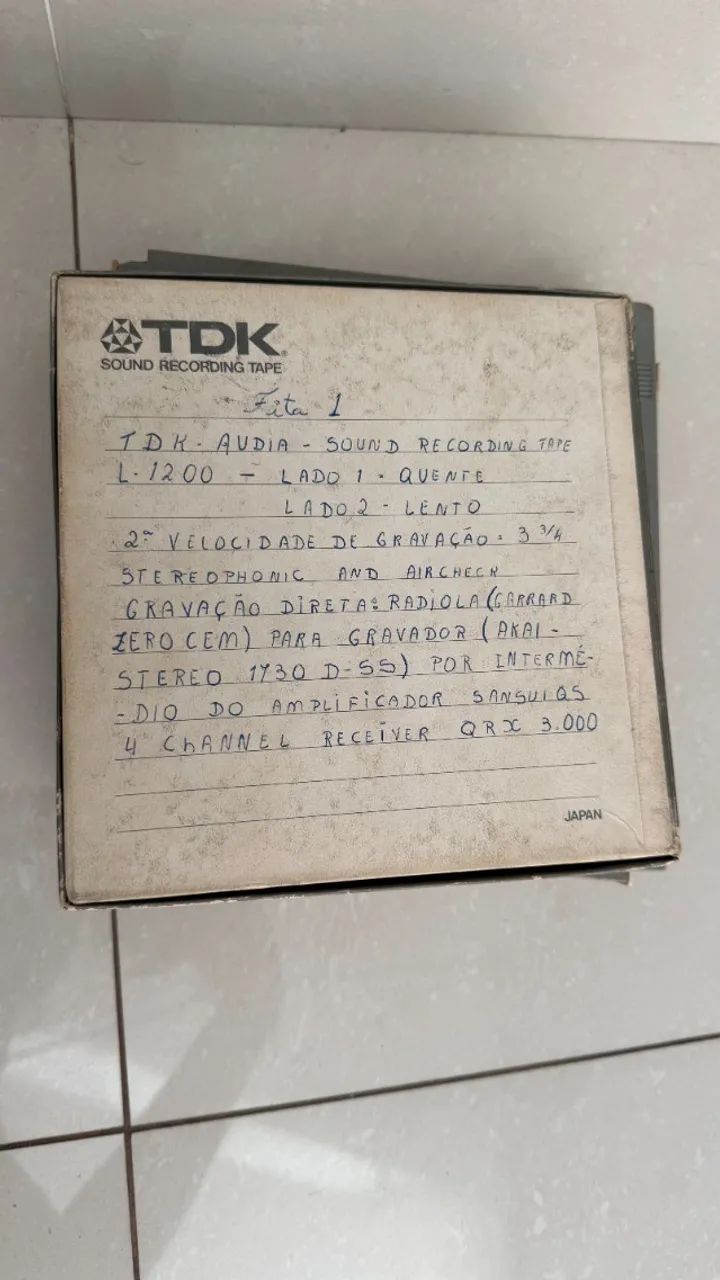 TDK
SOUND RECORDING TAPE
Fita 1
TDK - AUDIA - SOUND RECORDING TAPE
L-1200 - LADO 1 - QUENTE
LADO 2 - LENTO
2ª VELOCIDADE DE GRAVAÇÃO - 3 3/4
STEREOPHONIC AND AIRCHECK
GRAVAÇÃO DIRETA: RADIOLA (GARRARD
ZERO CEM) PARA GRAVADOR (AKAI -
STEREO 1730 D-SS) POR INTERMÉ-
-DIO DO AMPLIFICADOR SANSUI QS
4 ChANNEL RECEIVER QRX 3.000
JAPAN